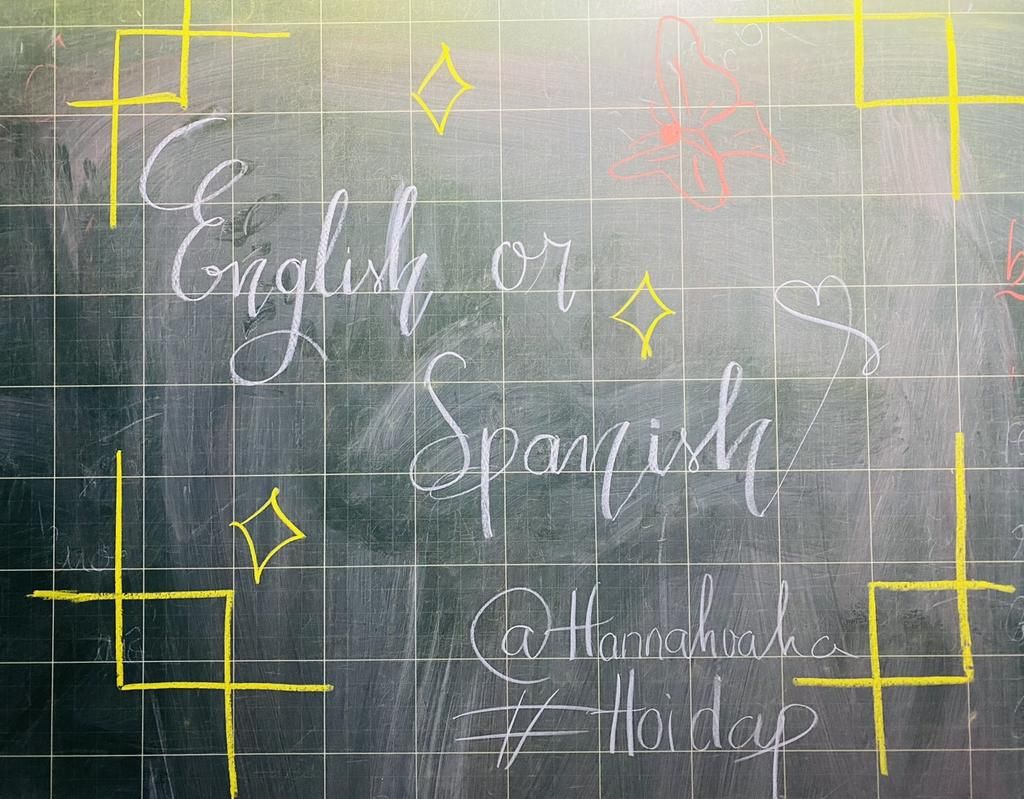 English or
Spanish
@Hannahoaha
#Hoidap